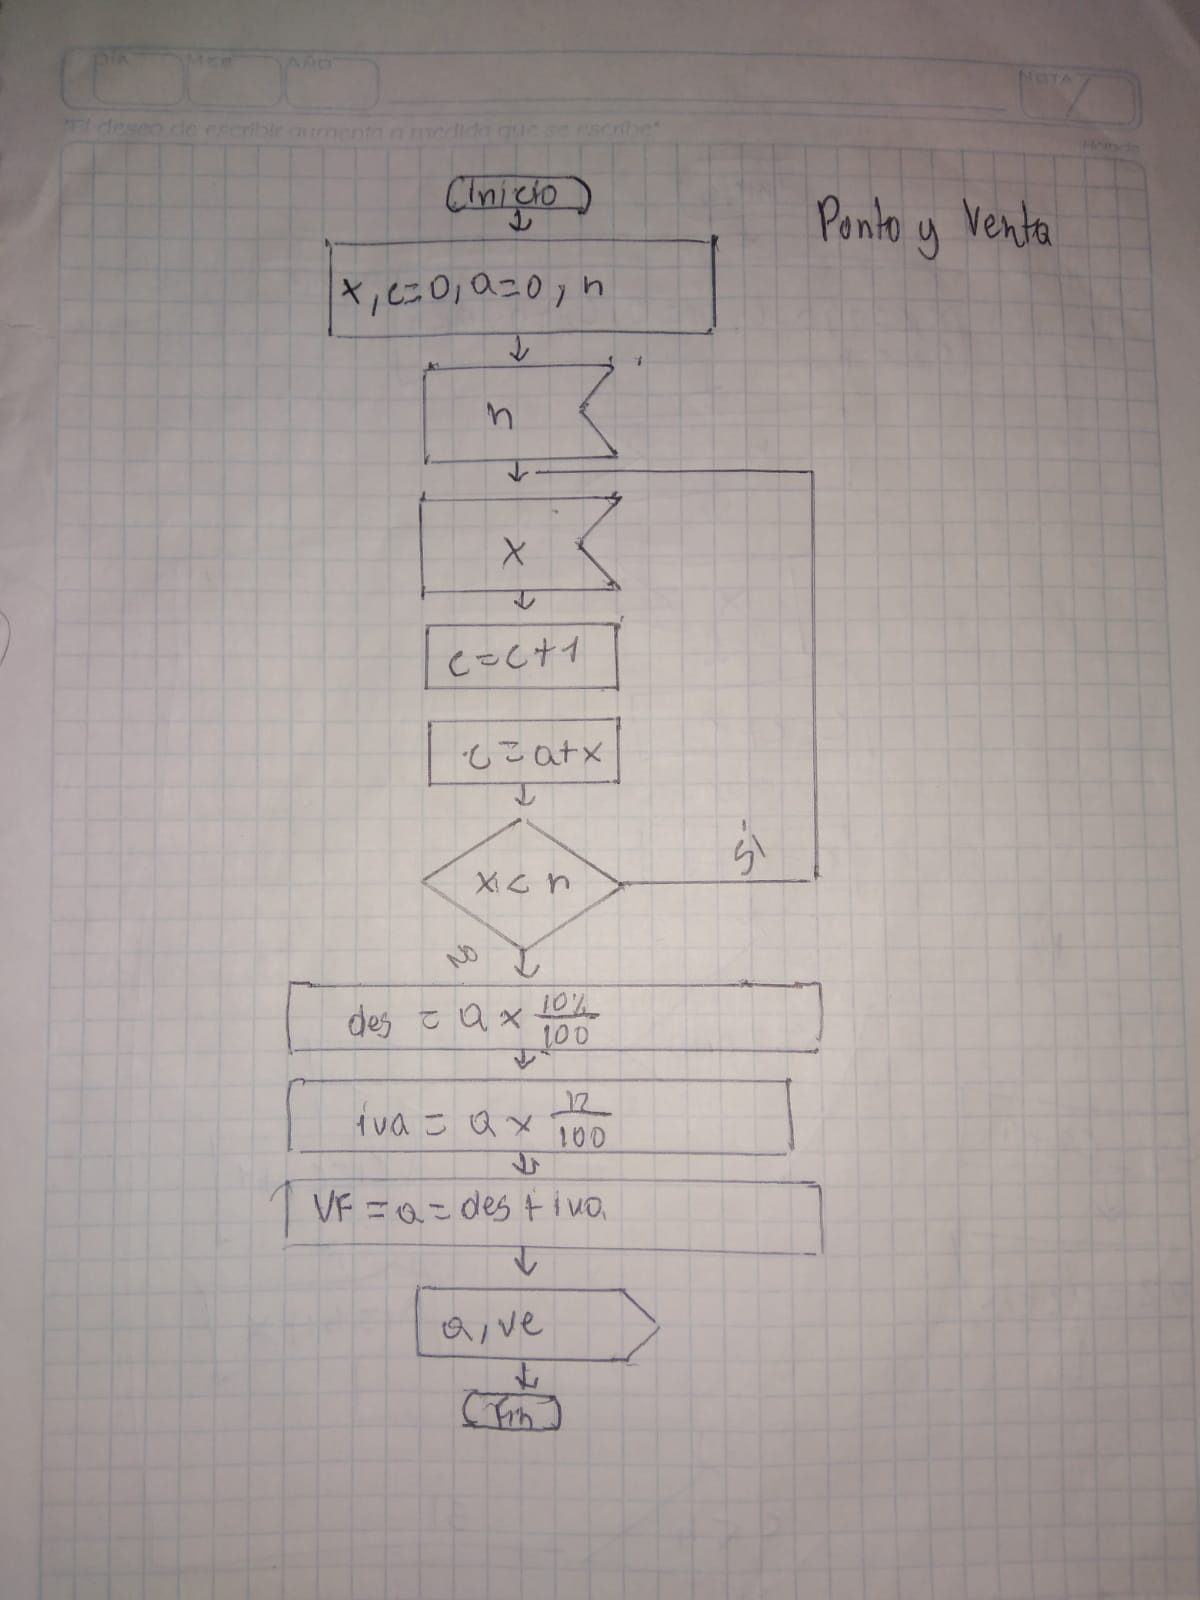 DÍA MES AÑO NOTA
"El deseo de escribir aumenta a medida que se escribe"
Inicio
Ponto y Venta
x, c=0, a=0, n
n
x
c=c+1
c=a+x
x < n
Si
No
des = a x 10%/100
iva = a x 12/100
VF = a = des + iva
a, ve
Fin